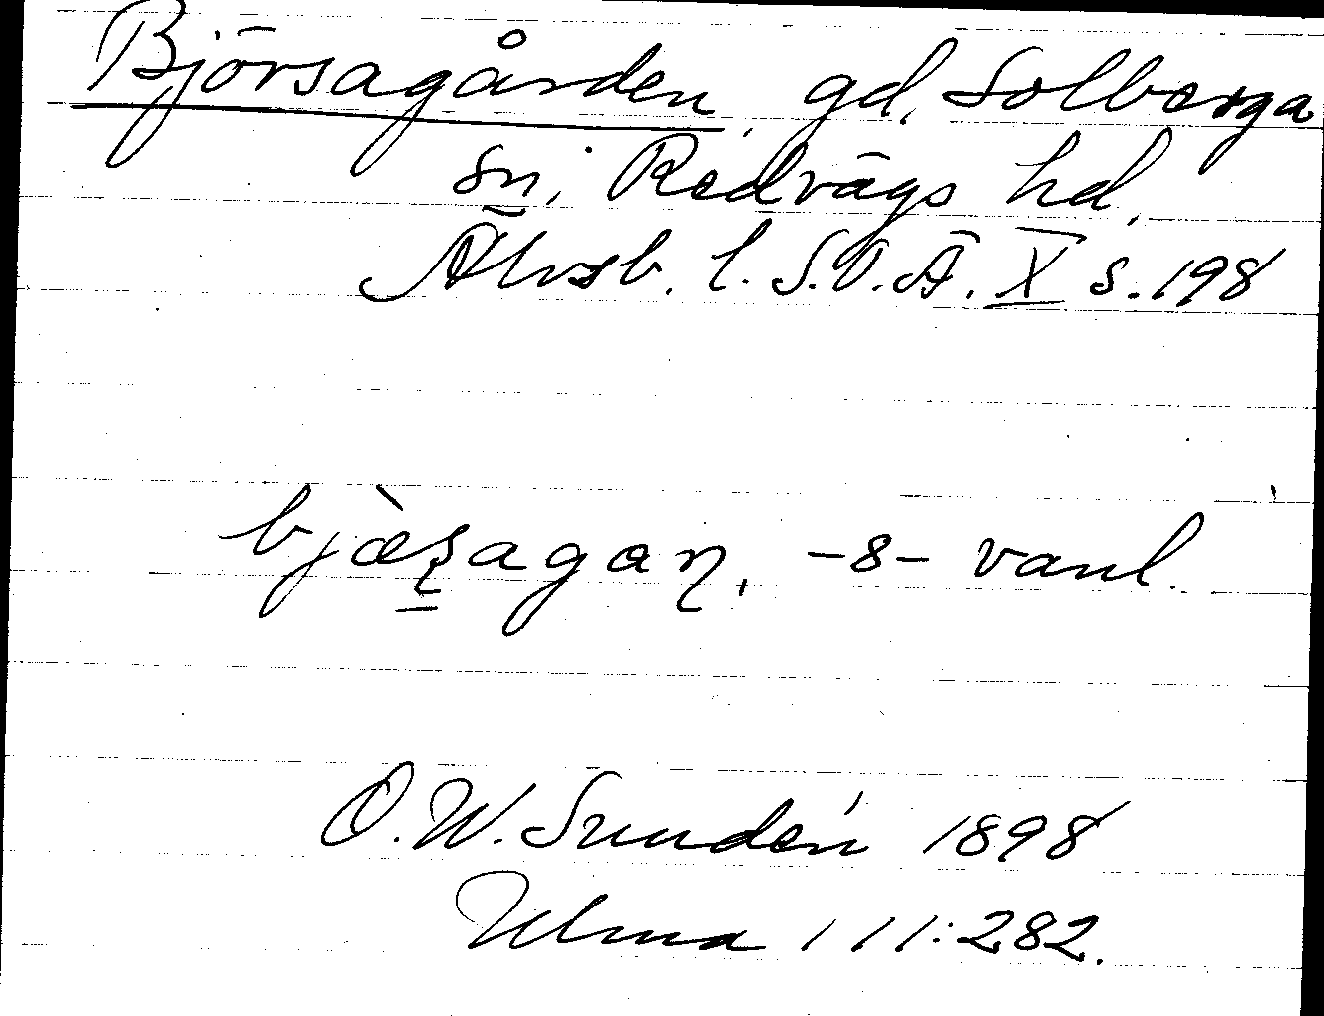 Björsagården, gd, Solberga
sn, Redvägs hd,
Älvsb. l. S.O.Ä. X s. 198
bjàʂagaɳ, -8- vanl.
O. W. Sundén 1898
Ulma 111:282.